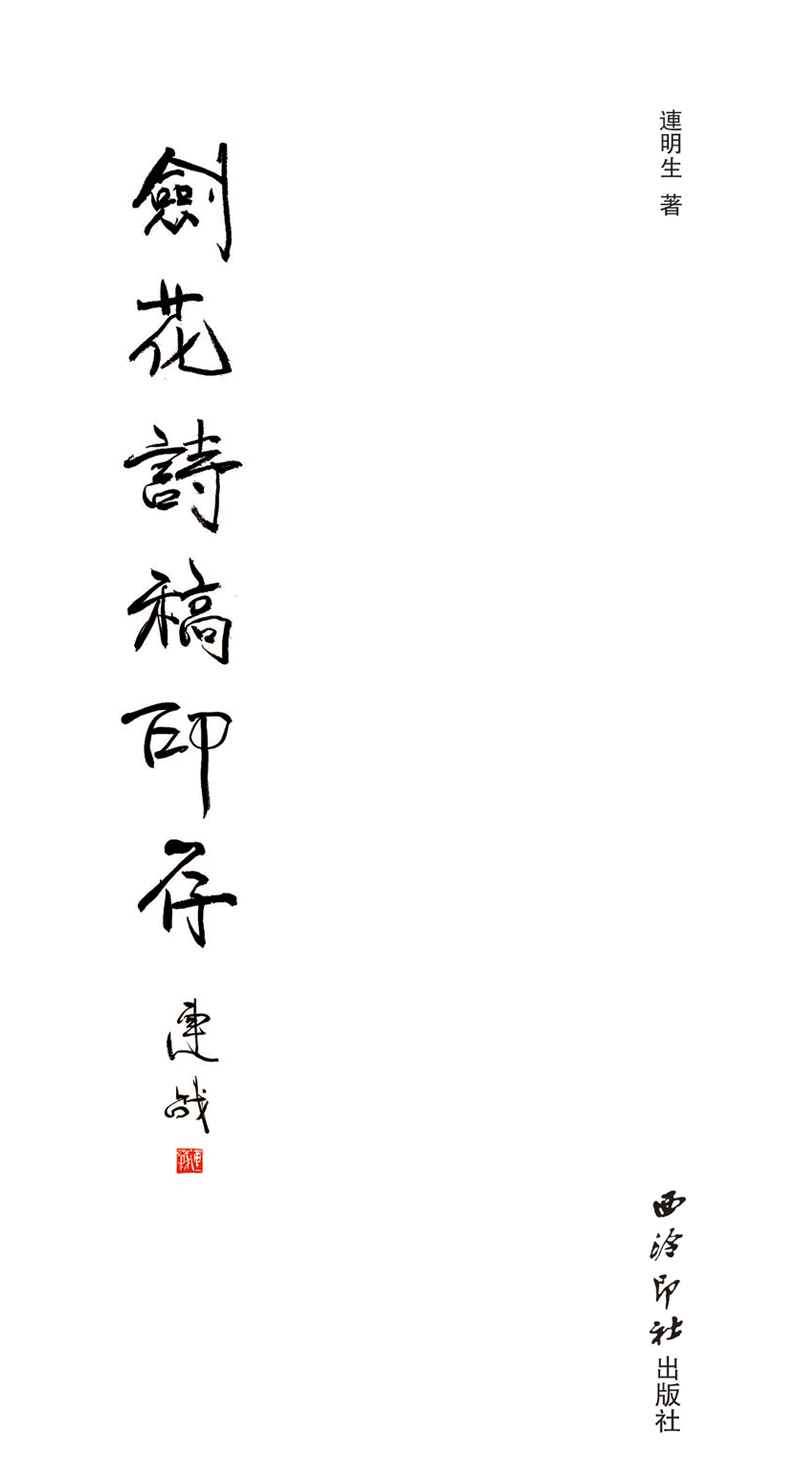 連明生 著
劍花詩稿印存
連战
西泠印社出版社